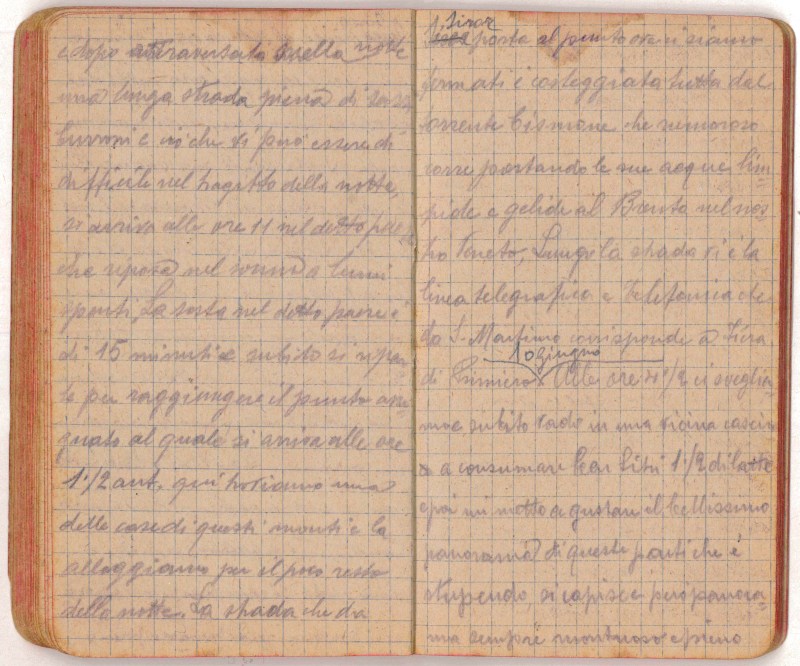 e dopo attraversata quella notte
una lunga strada piena di sassi
burroni e ciò che vi può essere di
difficile nel tragitto della notte,
si arriva alle ore 11 nel detto paese
che riposa nel sonno a lumi
spenti, La sosta nel detto paese è
di 15 minuti e subito si ripar
te per raggiungere il punto asse
gnato al quale si arriva alle ore
1:/2 ant. qui troviamo una
delle case di questi monti e la
alloggiamo per il poco resto
della notte. La strada che da
Siror
porta al punto ove ci siamo
fermati è costeggiata tutta dal
torrente Cismone che rumoroso
corre portando le sue acque lim-
pide e gelide al Brenta nel nos-
tro Veneto, Lungo la strada vi è la
linea telegrafica e telefonica che
da S. Martino corrisponde a Fiera
10 giugno
di Primiero. Alle ore 4 1/2 ci sveglia
mo e subito vado in una vicina cascin
a a consumare ben litri 1:/2 di latte
poi mi metto a gustare il bellissimo
panorama di queste parti che è
stupendo, si capisce però panora-
ma sempre montuoso e pieno